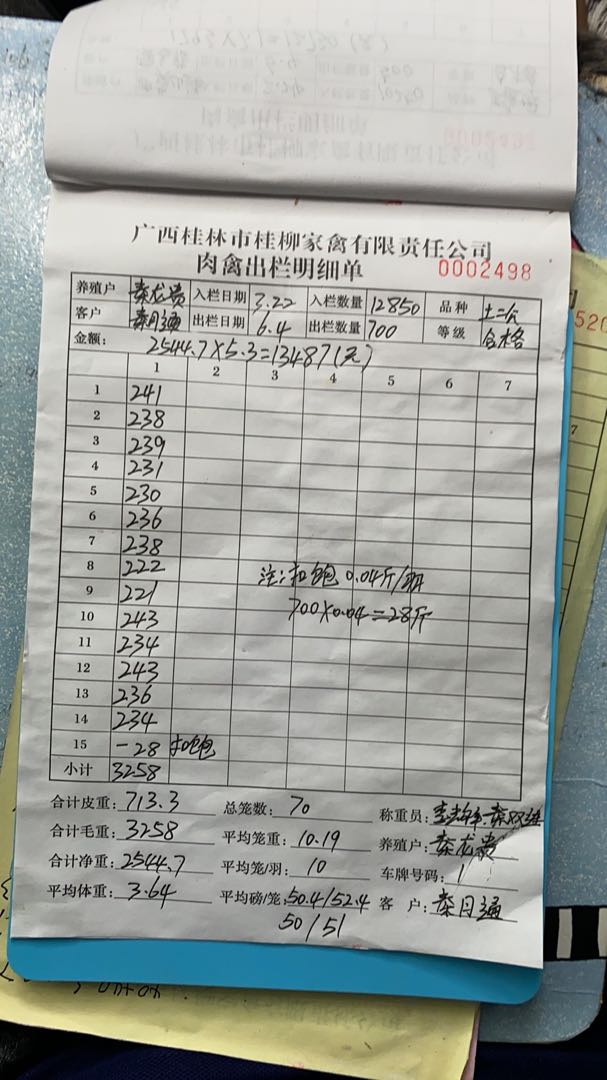 广西桂林市桂柳家禽有限责任公司
肉禽出栏明细单 0002498
养殖户 秦龙贵 入栏日期 3.22 入栏数量 12850 品种 土二公
客户 秦月通 出栏日期 6.4 出栏数量 700 等级 合格
金额: 2544.7×5.3=13487(元)
1 2 3 4 5 6 7
1 241
2 238
3 239
4 231
5 230
6 236
7 238
8 222 注:扣饱 0.04斤/羽
9 221 700×0.04=28斤
10 243
11 234
12 243
13 236
14 234
15 -28 扣饱
小计 3258
合计皮重: 713.3 总笼数: 70 称重员:
合计毛重: 3258 平均笼重: 10.19 养殖户: 秦龙贵
合计净重: 2544.7 平均笼/羽: 10 车牌号码: 1
平均体重: 3.64 平均磅/笼: 50.4/52.4 客 户: 秦月通
50/51
520
7